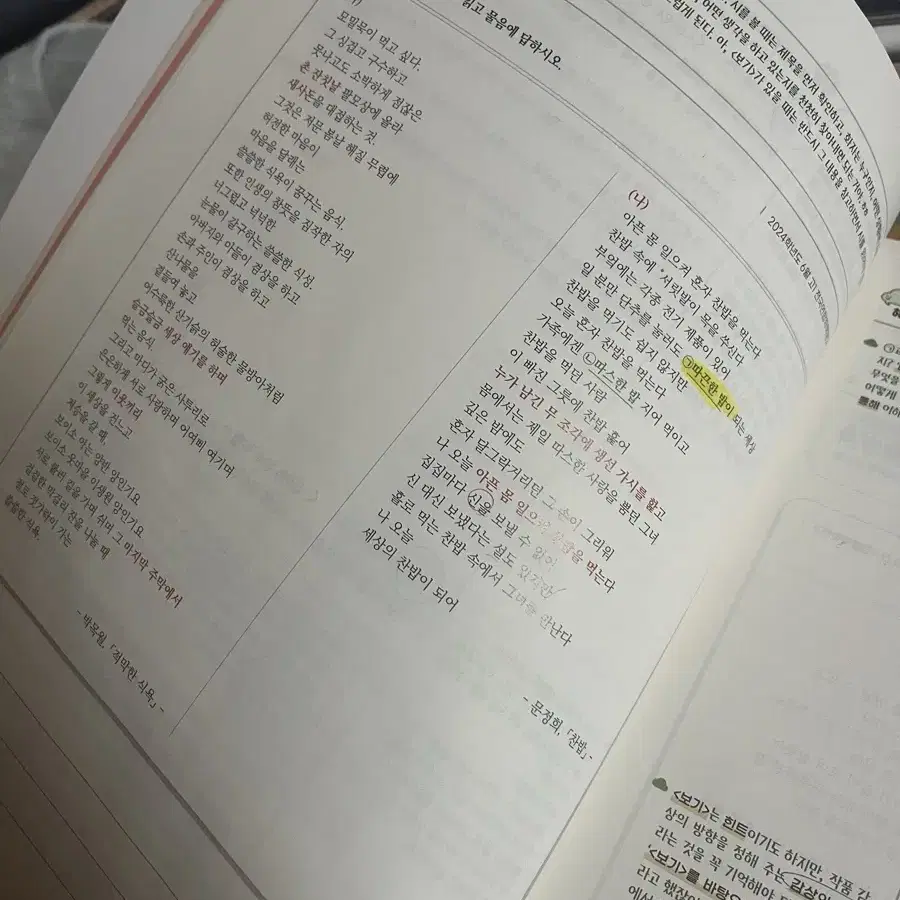 시를 볼 때는 제목을 먼저 확인하고, 화자는 누구인지, 어떤
어떤 생각을 하고 있는지를 천천히 찾아내면 되는 거야.
럽게 된다. 아, <보기>가 있을 때는 반드시 그 내용을 참고하면서 시를
읽고 물음에 답하시오.
2024학년도 6월 고1
모밀묵이 먹고 싶다.
그 싱겁고 구수하고
못나고도 소박하게 점잖은
촌 잔칫날 팔모상에 올라
새사돈을 대접하는 것.
그것은 저문 봄날 해질 무렵에
허전한 마음이
마음을 달래는
쓸쓸한 식욕이 꿈꾸는 음식.
또한 인생의 참뜻을 짐작한 자의
너그럽고 넉넉한
눈물이 갈구하는 쓸쓸한 식성.
아버지와 아들이 겸상을 하고
손과 주인이 겸상을 하고
산나물을
곁들여 놓고
어수룩한 산기슭의 허술한 물방아처럼
슬금슬금 세상 얘기를 하며
먹는 음식.
그리고 마디가 굵은 사투리로
은은하게 서로 사랑하며 어여삐 여기며
그렇게 이웃끼리
이 세상을 건느고
저승을 갈 때,
보이소 아는 양반 앙인기요
보이소 웃마을 이생원 앙인기요
서로 불러 길을 가며 쉬며 그 마지막 주막에서
걸걸한 막걸리 잔을 나눌 때
절로 젓가락이 가는
쓸쓸한 식욕.
- 박목월, 「적막한 식욕」 -
(나)
아픈 몸 일으켜 혼자 찬밥을 먹는다
찬밥 속에 *서릿발이 목을 쑤신다
부엌에는 각종 전기 제품이 있어
일 분만 단추를 눌러도 ㉠따끈한 밥이 되는 세상
찬밥을 먹기도 쉽지 않지만
오늘 혼자 찬밥을 먹는다
가족에겐 ㉡따스한 밥 지어 먹이고
찬밥을 먹던 사람
이 빠진 그릇에 찬밥 훑어
누가 남긴 무 조각에 생선 가시를 핥고
몸에서는 제일 따스한 사랑을 뿜던 그녀
깊은 밤에도
혼자 달그락거리던 그 손이 그리워
나 오늘 아픈 몸 일으켜 찬밥을 먹는다
집집마다 신을 보낼 수 없어
신 대신 보냈다는 설도 있지만
홀로 먹는 찬밥 속에서 그녀를 만난다
나 오늘
세상의 찬밥이 되어
- 문정희, 「찬밥」 -
지?
무엇을
어떻게
통해 이해
<보기>는 힌트이기도 하지만, 작품 감
상의 방향을 정해 주는 감상의
라는 것을 꼭 기억해야
'<보기>를 바탕으
라고 했잖아
에서